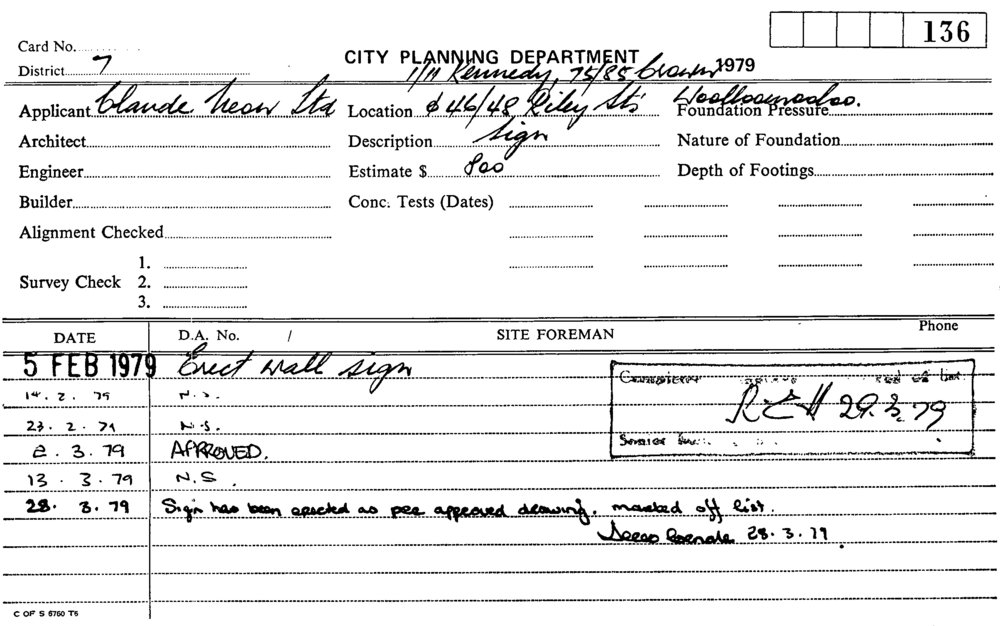 136
Card No.
District 7
CITY PLANNING DEPARTMENT
1/11 Kennedy, 75/85 Crown 1979
Applicant Claude Neon Ltd Location & 46/48 Riley Sts Woolloomooloo. Foundation Pressure
Architect Description Sign Nature of Foundation
Engineer Estimate $ 800 Depth of Footings
Builder Conc. Tests (Dates)
Alignment Checked
1.
Survey Check 2.
3.
DATE D.A. No. / SITE FOREMAN Phone
5 FEB 1979 Erect wall sign
14. 2. 79 N.S.
23. 2. 79 N.S.
2. 3. 79 APPROVED.
13. 3. 79 N.S.
28. 3. 79 Sign has been erected as per approved drawing. marked off list.
28. 3. 79
off list
REH 29.3.79
Senior
C OF S 6760 T6